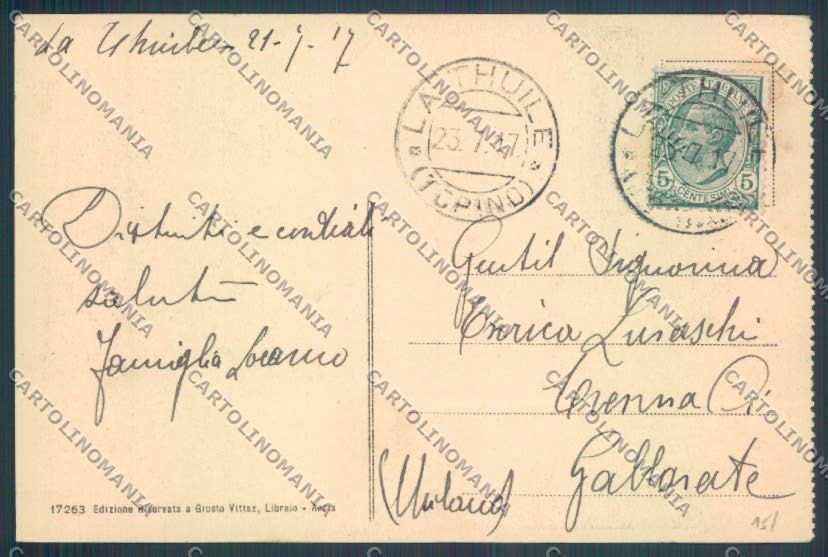 La Thuile 21-7-17
LA THUILE
23.7.17
(TORINO)
POSTE ITALIANE
5 CENTESIMI 5
Distinti e cordiali
saluti
famiglia
Gentil Signorina
Enrica Luraschi
Crenna Di
Gallarate
(Milano)
17263 Edizione Riservata a Giusto Vittaz, Libraio - Aosta
15/
CARTOLINOMANIA